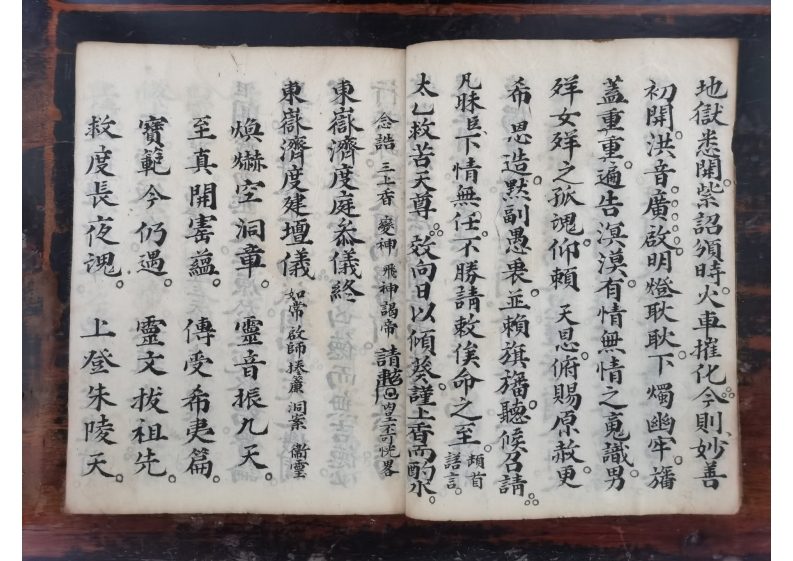 地獄悉開。紫詔頒時。火車摧化。今則妙善
初開。洪音廣啟。明燈耿耿。下燭幽牢。旛
蓋重重。遍告溟漠。有情無情之䰟識。男
䍧女䍧之孤䰟。仰賴 天恩。俯賜原赦。更
希 恩造。默副愚衷。並賴旗旛。聽候召請。
凡昧臣下情無任。不勝請敕俟命之至。頓首 謹言。
太乙救苦天尊。效向日以傾葵。謹上香而酌水。
念誥 三上香 變神 飛神謁帝 請赦
東嶽濟度庭參儀終
東嶽濟度建壇儀 如常 啟師 捲簾 洞案 衛靈
煥爀空洞章。 靈音振九天。
至真開寚蘊。 傳受希夷篇。
寶範今仍遇。 靈文拔祖先。
救度長夜䰟。 上登朱陵天。